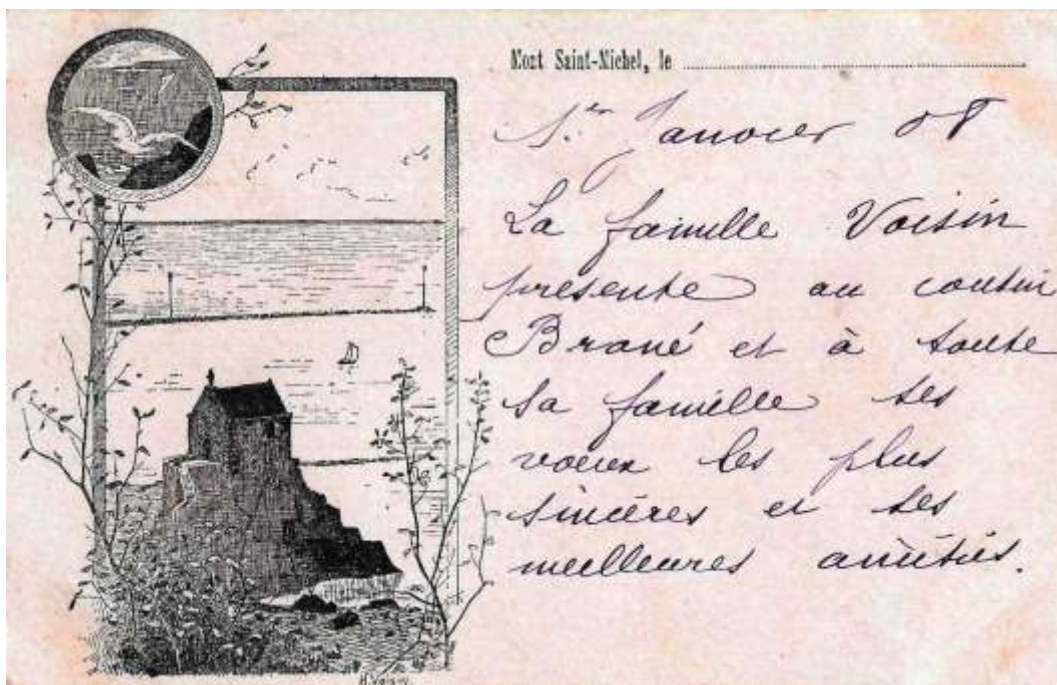 Mont Saint-Michel, le
1er Janvier 08
La famille Voisin
présente au cousin
et à toute
sa famille ses
voeux les plus
sincères et ses
meilleures amitiés.
H. Voisin